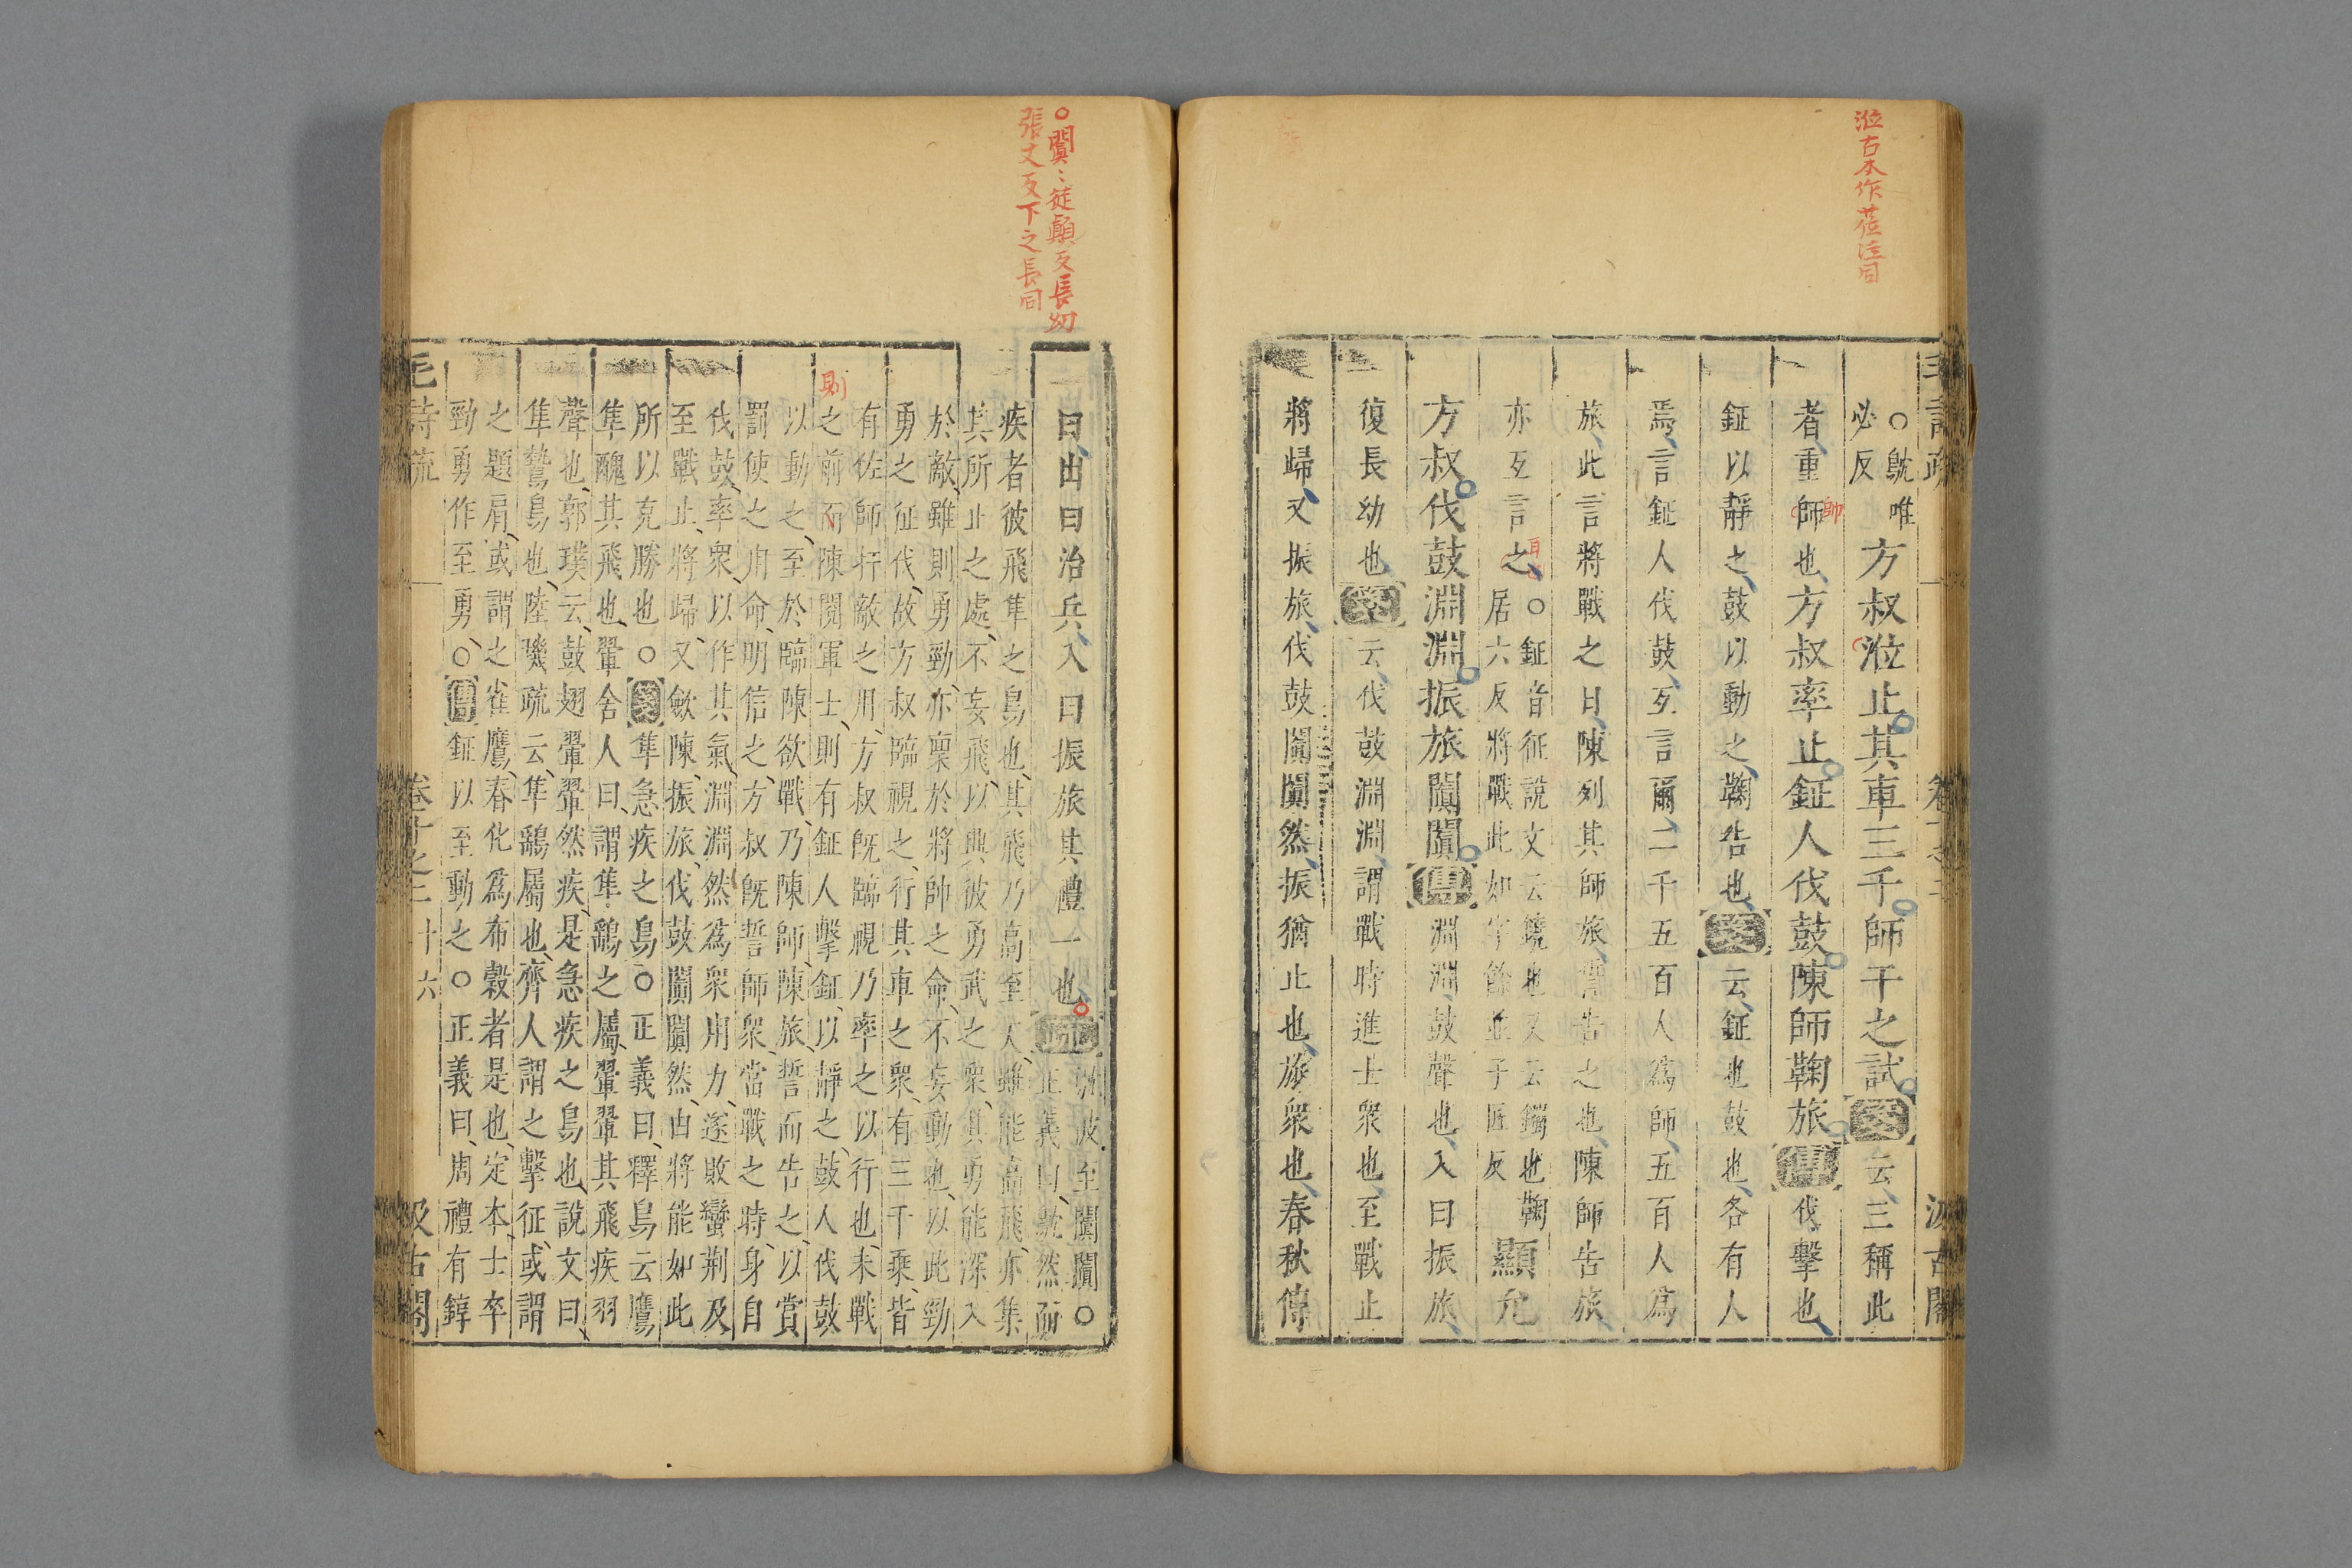 涖古本作莅注同
○鴥唯
必反
方叔涖止其車三千師干之試箋云三稱此
者重師也方叔率止鉦人伐鼓陳師鞠旅傳伐擊也
帥
鉦以靜之鼓以動之鞠告也箋云鉦也鼓也各有人
焉言鉦人伐鼓互言爾二千五百人爲師五百人爲
旅此言將戰之日陳列其師旅誓告之也陳師告旅
亦互言之
○鉦音征說文云鐃也又云鐲也鞠
居六反將戰此如字餘並子匠反
顯允
方叔伐鼓淵淵振旅闐闐傳淵淵鼓聲也入曰振旅
復長幼也箋云伐鼓淵淵謂戰時進士衆也至戰止
將歸又振旅伐鼓闐闐然振猶止也旅衆也春秋傳
○闐〻徒顛反長幼
張丈反下之長同
曰出曰治兵入曰振旅其禮一也
疏鴥彼至闐闐○
正義曰鴥然而
疾者彼飛隼之鳥也其飛乃高至天雖能高飛亦集
其所止之處不妄飛以興彼勇武之衆其勇能深入
於敵雖則勇勁亦稟於將帥之命不妄動也以此勁
勇之征伐故方叔臨視之行其車之衆有三千乘皆
有佐師扞敵之用方叔旣臨視乃率之以行也未戰
則
之前而陳閱軍士則有鉦人擊鉦以靜之鼓人伐鼓
以動之至於臨陳欲戰乃陳師陳旅誓而告之以賞
罰使之用命明信之方叔旣誓師衆當戰之時身自
伐鼓率衆以作其氣淵淵然爲衆用力遂敗蠻荆及
至戰止將歸又斂陳振旅伐鼓闐闐然由將能如此
所以克勝也○箋隼急疾之鳥○正義曰釋鳥云鷹
隼醜其飛也翬舍人曰謂隼鷂之屬翬翬其飛疾羽
聲也郭璞云鼓翅翬翬然疾是急疾之鳥也說文曰
隼鷙鳥也陸璣疏云隼鷂屬也齊人謂之擊征或謂
之題肩或謂之雀鷹春化爲布穀者是也定本士卒
勁勇作至勇○傳鉦以至動之○正義曰周禮有錞
毛詩疏 卷十之二 十六 汲古閣